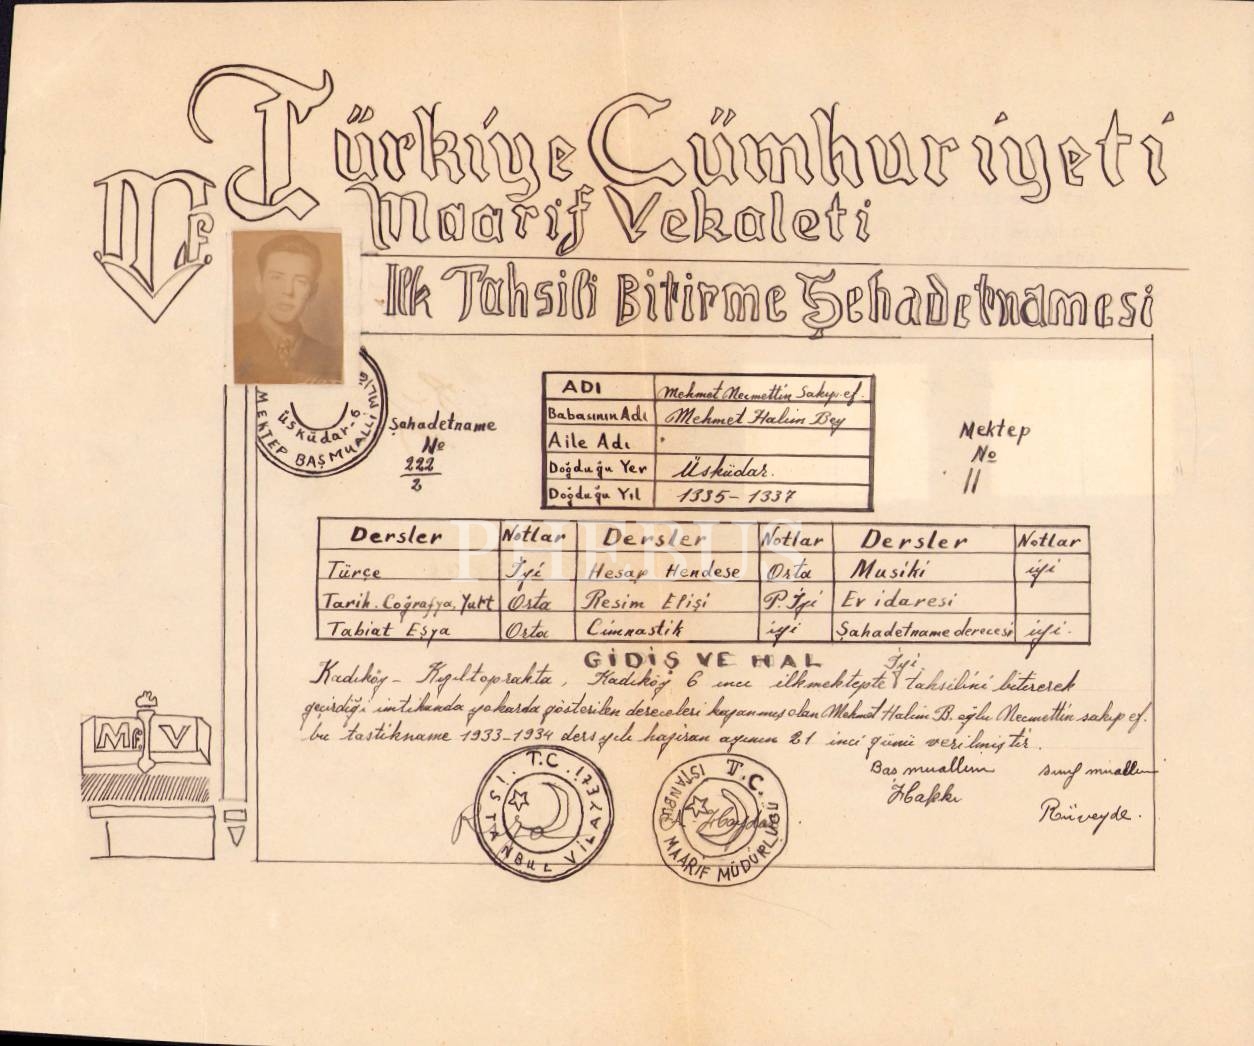 Türkiye Cümhuriyeti
Maarif Vekaleti
Mf.
Ilk Tahsili Bitirme Şehadetnamesi
MEKTEP BAŞMUALLİMLİĞİ
Üsküdar-6
Şahadetname
No
222
2
ADI Mehmet Necmettin Sakıp ef.
Babasının Adı Mehmet Halim Bey
Aile Adı
Doğduğu Yer Üsküdar.
Doğduğu Yıl 1335-1337
Mektep
No
11
PHEBUS
Dersler Notlar Dersler Notlar Dersler Notlar
Türçe İyi Hesap Hendese Orta Musiki iyi
Tarih. Coğrafya. Yurt Orta Resim Elişi P. İyi Ev idaresi
Tabiat Eşya Orta Cimnastik iyi Şahadetname derecesi iyi.
GİDİŞ VE HAL İyi
Kadıköy - Kızıltoprakta, Kadıköy 6 ıncı ilkmektepte tahsilini bitirerek
geçirdiği imtihanda yokarda gösterilen dereceleri kazanmış olan Mehmet Halim B. oğlu Necmettin sakıp ef.
bu tastikname 1933-1934 ders yılı haziran ayının 21 inci günü verilmiştir.
Baş muallim sınıf muallim
Hakkı
Rüveyde.
T.C. İSTANBUL VİLAYETİ
T.C. İSTANBUL MAARİF MÜDÜRLÜĞÜ
Haydar
Mf. V